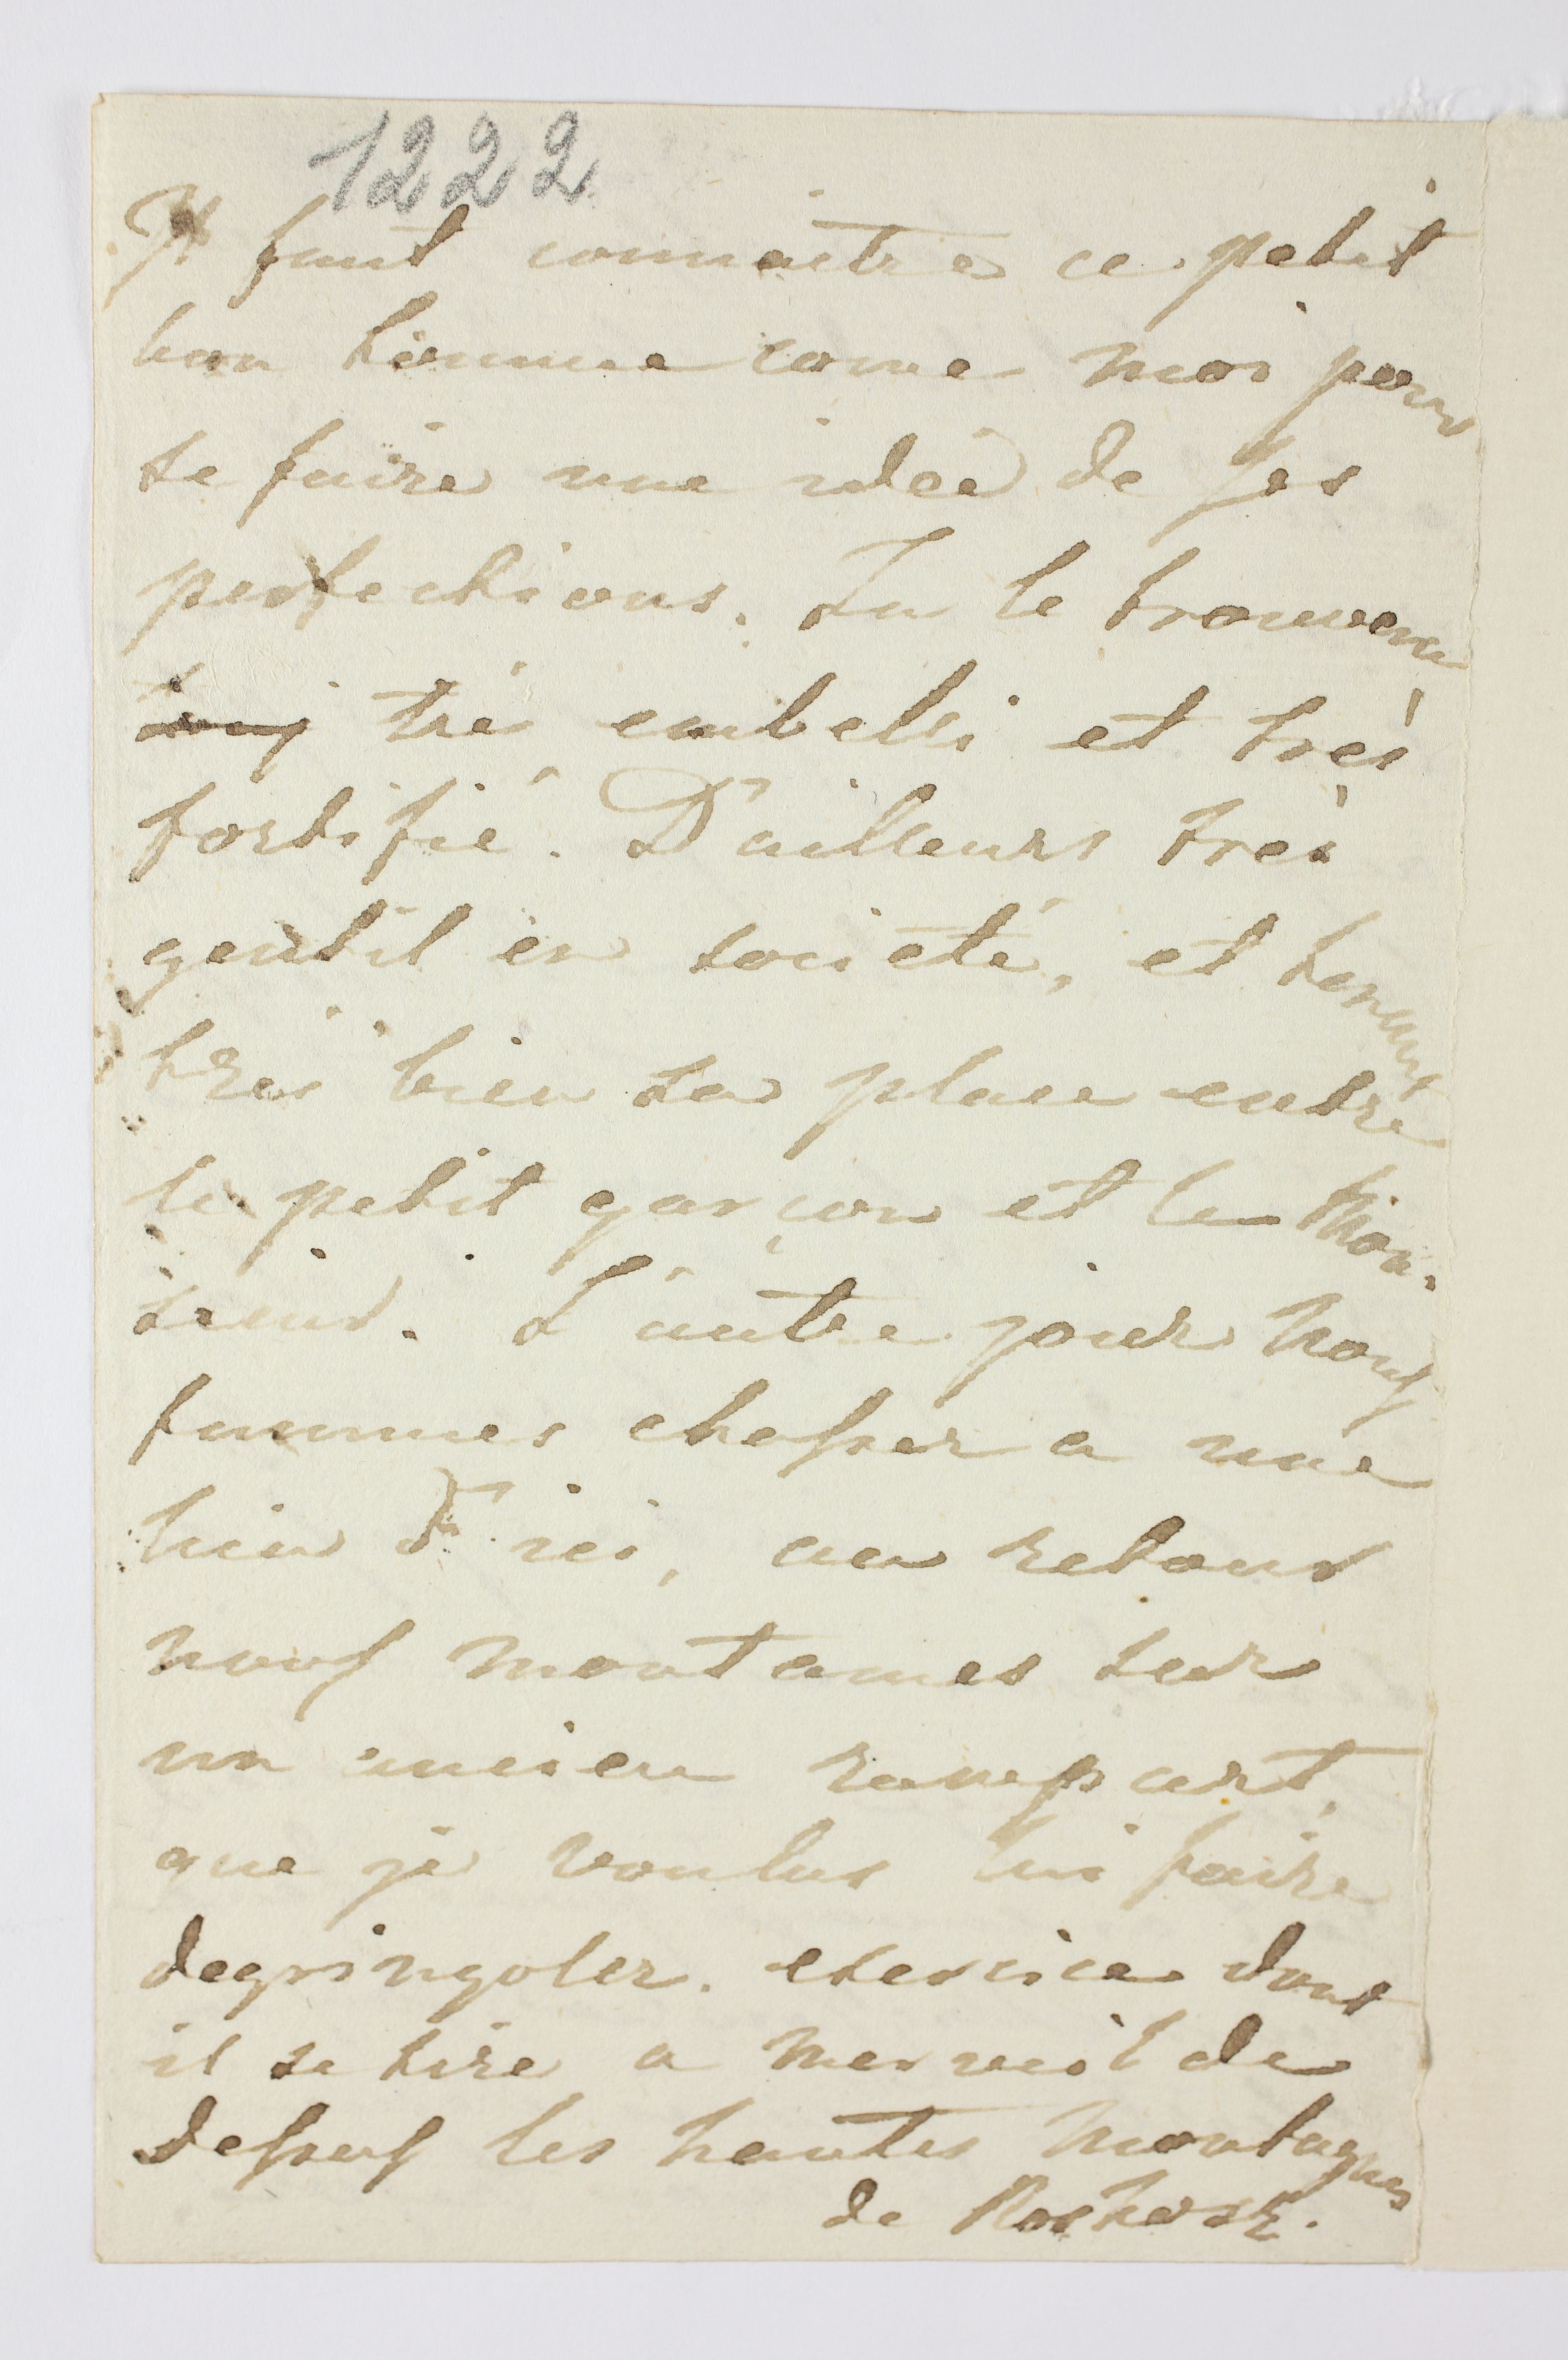 1222
Il faut connaitre ce petit
bon homme come moi pour
se faire une idée de ses
perfections. Tu le trouvera
tres embelli et très
fortifié. D'ailleurs très
gentil en société, et tenant
très bien sa place entre
le petit garçon et le Mon-
sieur. L'autre jour nous
fummes chasser a une
lieu d'ici, au retour
nous montames sur
un ancien rempart,
que je voulus lui faire
degringoler. exercice dont
il se tire a merveil de
dessus les hautes montagnes
de